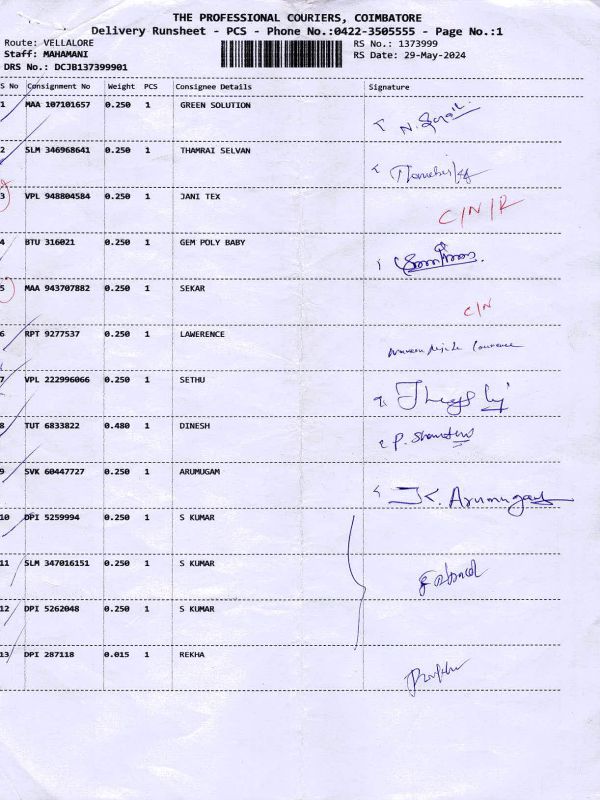 THE PROFESSIONAL COURIERS, COIMBATORE
Delivery Runsheet - PCS - Phone No.:0422-3505555 - Page No.:1
Route: VELLALORE RS No.: 1373999
Staff: MAHAMANI RS Date: 29-May-2024
DRS No.: DCJB137399901
S No Consignment No Weight PCS Consignee Details Signature
1 MAA 107101657 0.250 1 GREEN SOLUTION
2 SLM 346968641 0.250 1 THAMRAI SELVAN
3 VPL 948804584 0.250 1 JANI TEX C/N/R
4 BTU 316021 0.250 1 GEM POLY BABY
5 MAA 943707882 0.250 1 SEKAR C/N
6 RPT 9277537 0.250 1 LAWERENCE
7 VPL 222996066 0.250 1 SETHU
8 TUT 6833822 0.480 1 DINESH
9 SVK 60447727 0.250 1 ARUMUGAM K. Arumugam
10 DPI 5259994 0.250 1 S KUMAR
11 SLM 347016151 0.250 1 S KUMAR
12 DPI 5262048 0.250 1 S KUMAR
13 DPI 287118 0.015 1 REKHA